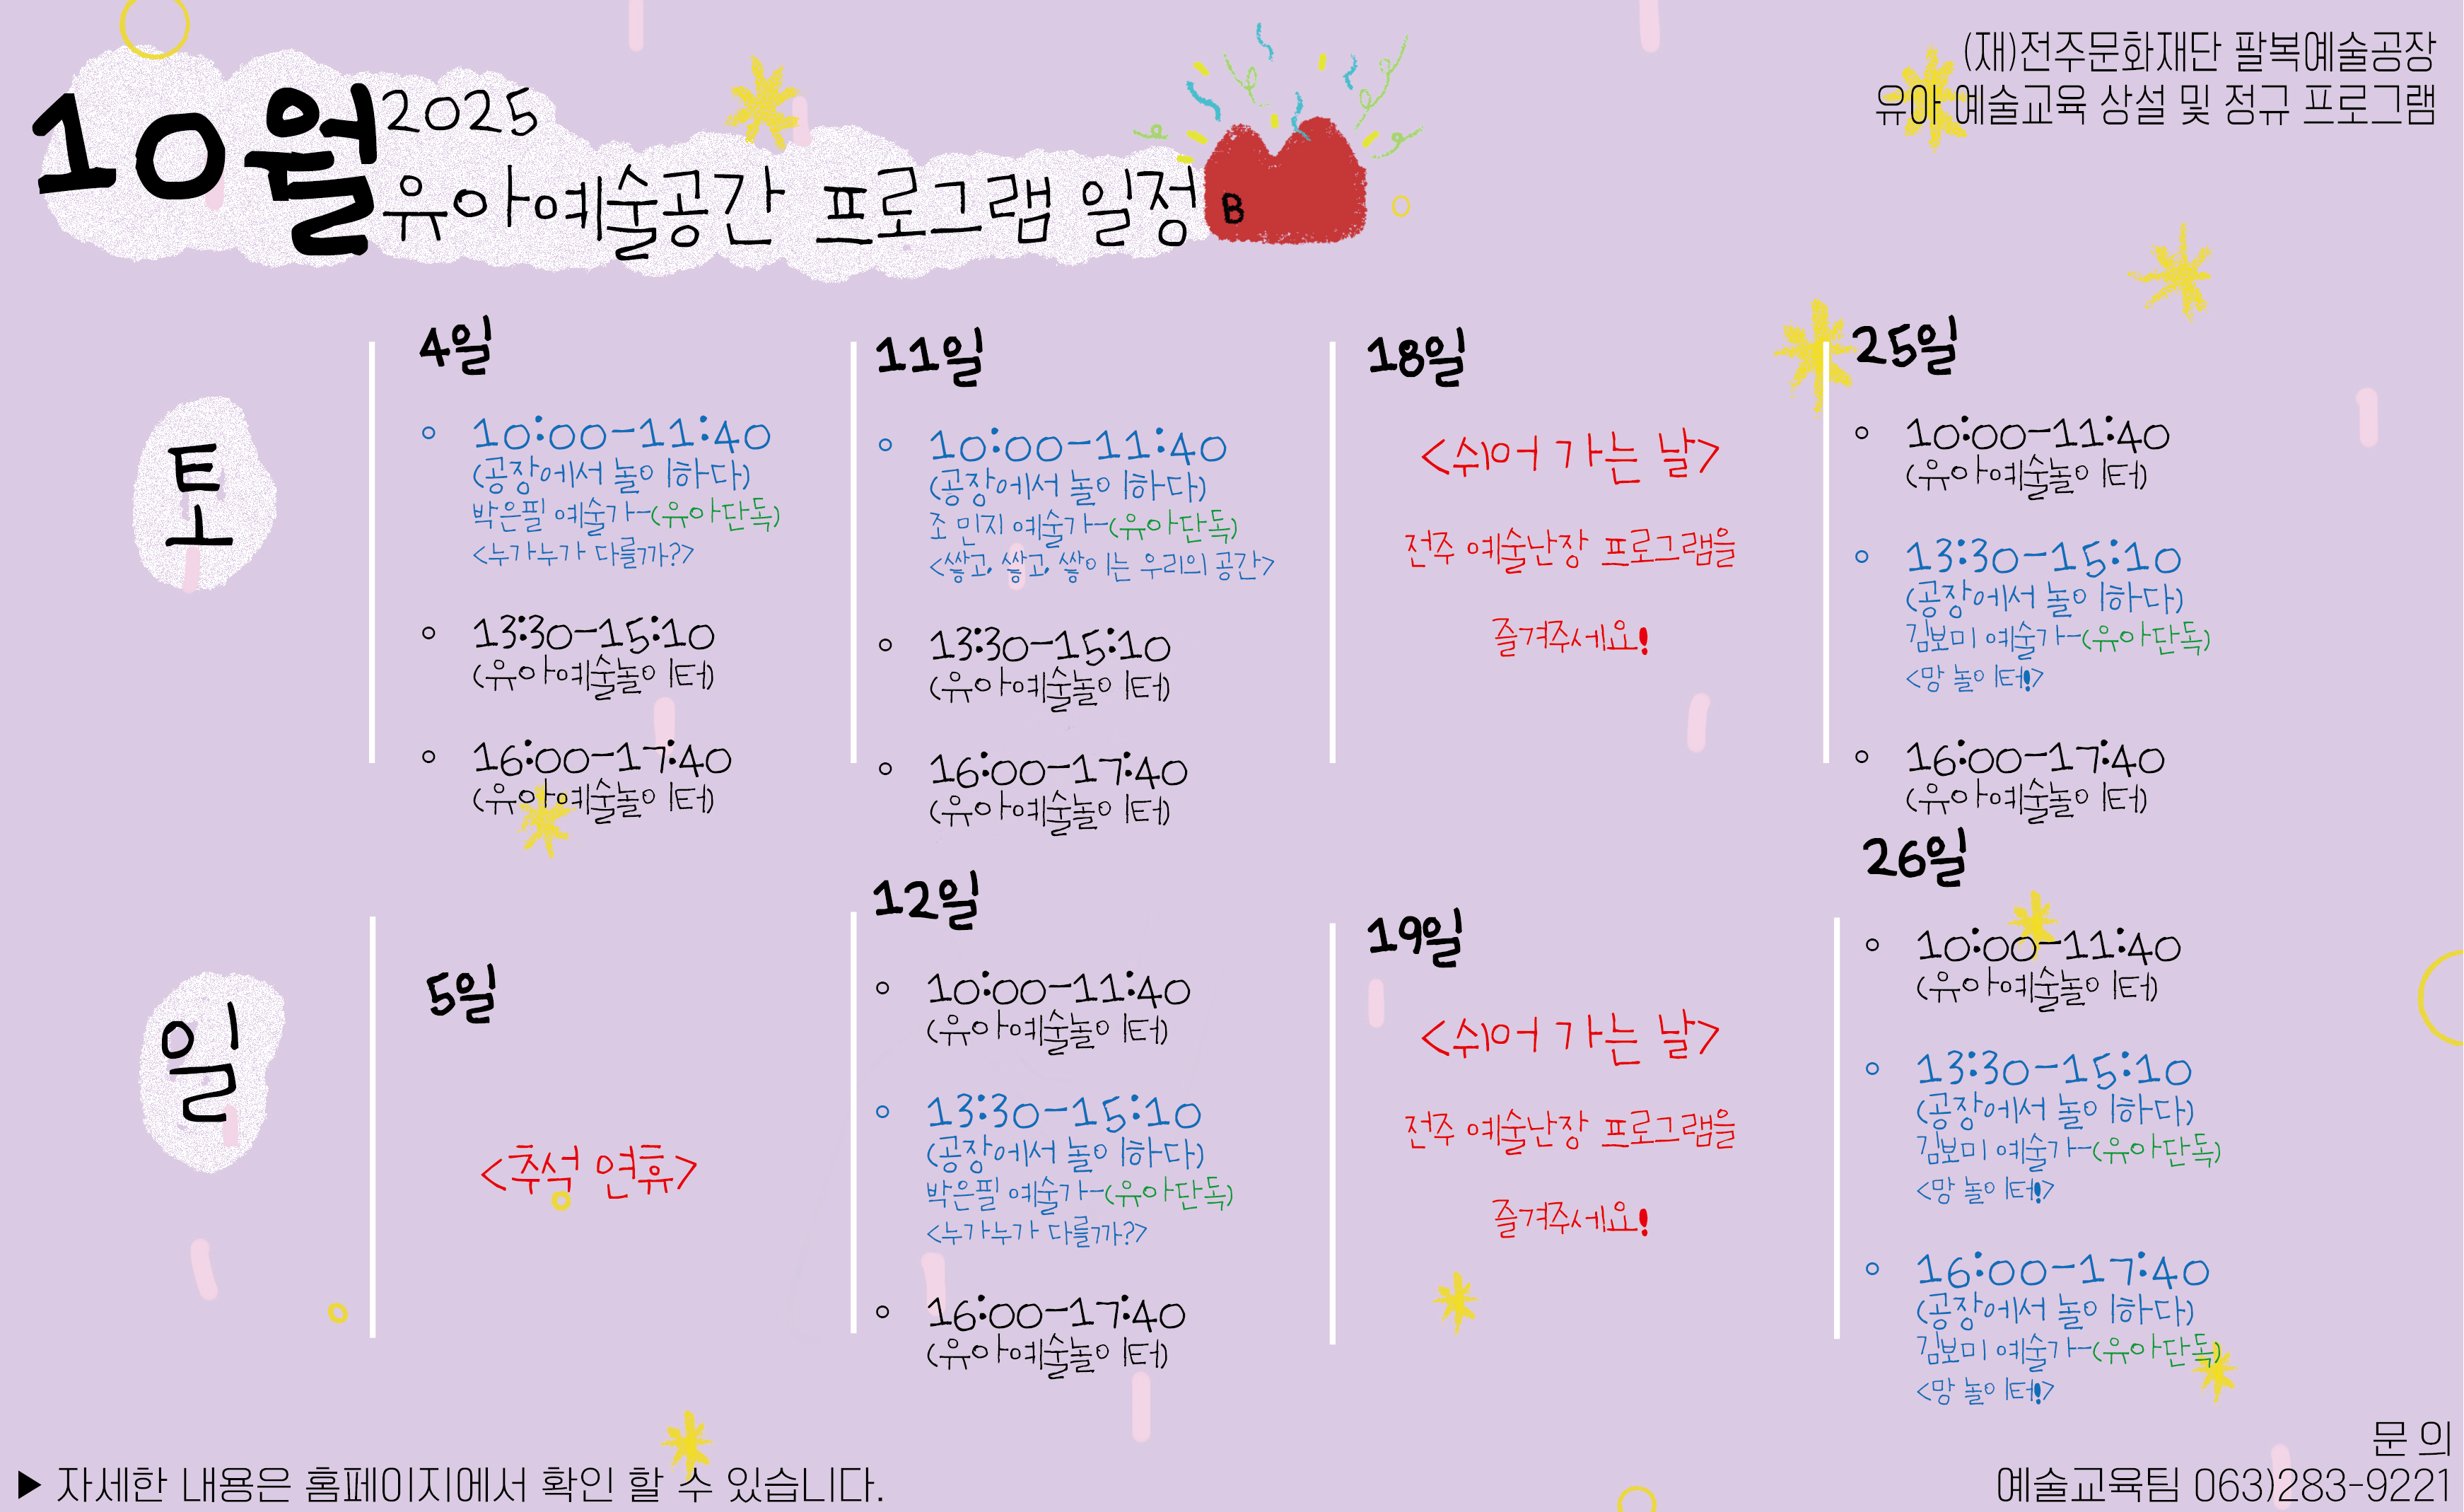 (재)전주문화재단 팔복예술공장
유아 예술교육 상설 및 정규 프로그램
10월
2025
유아예술공간 프로그램 일정
B
토
4일
10:00-11:40
(공장에서 놀이하다)
박은필 예술가-(유아단독)
<누가누가 다를까?>
13:30-15:10
(유아예술놀이터)
16:00-17:40
(유아예술놀이터)
11일
10:00-11:40
(공장에서 놀이하다)
조 민지 예술가-(유아단독)
<쌓고, 쌓고, 쌓이는 우리의 공간>
13:30-15:10
(유아예술놀이터)
16:00-17:40
(유아예술놀이터)
18일
<쉬어 가는 날>
전주 예술난장 프로그램을
즐겨주세요!
25일
10:00-11:40
(유아예술놀이터)
13:30-15:10
(공장에서 놀이하다)
김보미 예술가-(유아단독)
<망 놀이터!>
16:00-17:40
(유아예술놀이터)
일
5일
<추석 연휴>
12일
10:00-11:40
(유아예술놀이터)
13:30-15:10
(공장에서 놀이하다)
박은필 예술가-(유아단독)
<누가누가 다를까?>
16:00-17:40
(유아예술놀이터)
19일
<쉬어 가는 날>
전주 예술난장 프로그램을
즐겨주세요!
26일
10:00-11:40
(유아예술놀이터)
13:30-15:10
(공장에서 놀이하다)
김보미 예술가-(유아단독)
<망 놀이터!>
16:00-17:40
(공장에서 놀이하다)
김보미 예술가-(유아단독)
<망 놀이터!>
▶ 자세한 내용은 홈페이지에서 확인 할 수 있습니다.
문 의
예술교육팀 063)283-9221